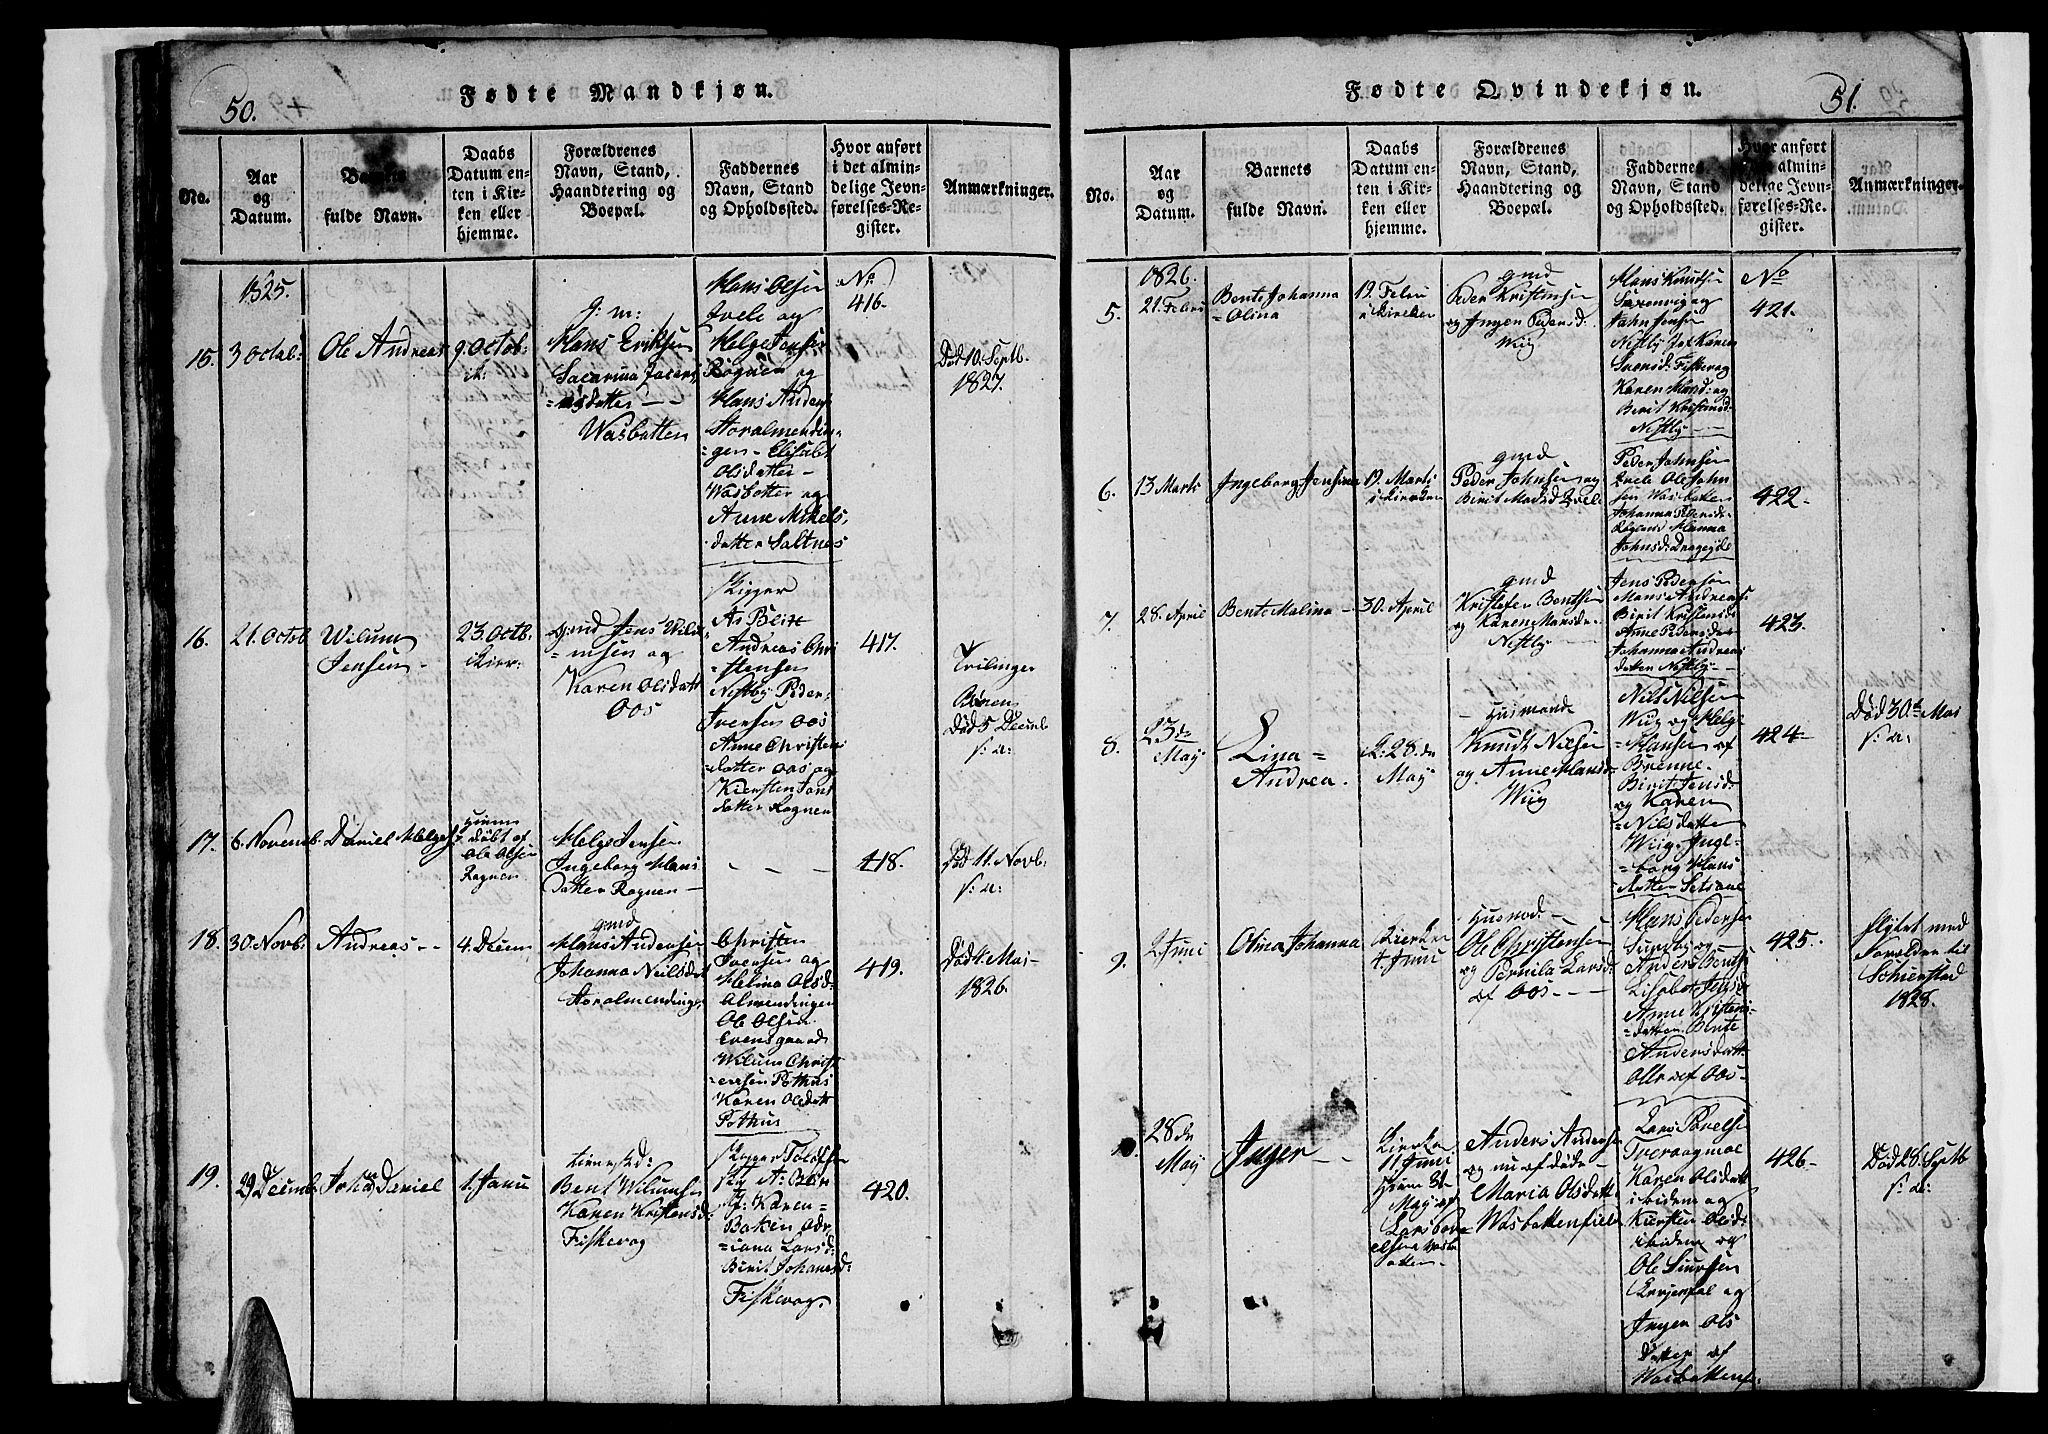 50.
Fødte Mandkjøn.
No.
Aar
og
Datum.
Barnets
fulde Navn.
Daabs
Datum en-
ten i Kir-
ken eller
hjemme.
Forældrenes
Navn, Stand,
Haandtering og
Boepæl.
Faddernes
Navn, Stand
og Opholdssted.
Hvor anført
i det almin-
delige Jevn-
førelses-Re-
gister.
Anmærkninger.
1825.
15.
3 Octob:
Ole Andreas
9. Octob:
k:
g: m:
Hans Eriksen
Wasbatten
Hans Olsen
Qvele og
Helge Jensen
Rognen og
Hans Anders
Storalmendin-
gen - Elisabt
Olsdatter -
Wasbotter og
Anne Mikels
datter Saltnes
No
416.
Død 10. Septb.
1827.
16.
21. Octob
Wilum
Jensen
23. Octb.
i Kirk:
gmd Jens Wilu
=msen og
Karen Olsdatt
Oos
Skipper
As Blix
Andreas Chri
=stensen
Nestby Peder
Iversen Oos
Anne Christens
=datter Oos og
Kiersten Jons
datter Rognen
417.
Trilinger
Børen
Død 5 Decemb
s: a:
17.
6. Novemb.
Daniel Helges:
Hiemme
døbt af
Ole Olsen
Rognen
Helge Jensen
Ingeborg Hans
datter Rognen -
- - -
418.
Død 11. Novb:
s: a:
18.
30. Novb.
Andreas - -
4. Decem
gmd
Hans Andersen
Johanna Neilsdat
Storalmendingen
Christen
Iversen og
Helina Olsd:
Almendingen
Ole Olsen
Evensgaard
Wilum Christ
=ensen Pothus
Karen Olsdatt
Pothus
419.
Død 4. Mai
1826.
19.
29 Decemb.
Johan Daniel
1. Janu
tienested:
Bent Wilumsen
Karen Kristensd:
Fiskevog
J: Karen
Baken Adr
=iana Larsd:
Birit Johannsd:
Fiskevog.
420.
51.
Fødte Qvindekjøn.
No.
Aar
og
Datum.
Barnets
fulde Navn.
Daabs
Datum en-
ten i Kir-
ken eller
hjemme.
Forældrenes
Navn, Stand,
Haandtering og
Boepæl.
Faddernes
Navn, Stand
og Opholdssted.
Hvor anført
i det almin-
delige Jevn-
førelses-Re-
gister.
Anmærkninger.
1826.
5.
21. Febru
Bente Johanna
=Olina
19. Febru
i Kirken
gmd
Peder Kristensen
og Ingen Pedersd:
Wiig
Hans Knutsen
Saxenvig og
John Jensen
Nestby Jox Karen
Svensd: Fiskevog
Karen Hansd: og
Birit Kristensd
Nestby -
No
421.
6.
13 Marti
Ingeborg Jensina
19. Marti
i Kirken
gmd
Peder Johnsen og
Birit Madsd Qvele
Peder Johnsen
Qvele Ole John
sen Wasbatten
Johanna Pedersd:
Rognen Hanna
Johnsd: Dragegile
422.
7.
28. April
Bente Malina -
30. April
gmd
Kristofer Bentsen
og Karen Hansd:
Nestby -
Jens Pedersen
Hans Andreas:
Birit Kristensd:
Anne Pedersdat
Johanna Andreas
datter Nestby -
423.
8.
23de
May
Lina=
Andrea.
K: 28. de
May
Husmand
Knudt Nilsen
og Anne Hansd
Wiig
Nils Nilsen
Wiig og Helge
=Hansen af
Brenne -
Birit Jensd:
og Karen
=Nilsdatter
Wiig - Inge
=borg Hans
datter Setsaae
424
Død 30te Mai
s: a:
9.
2. Juni
Olina Johanna
Kierken
4. Juni
Husmd: -
Ole Christensen
og Pernila Larsd:
af Oos - - -
Hans Pedersen
Anders Bentsen
Lisabet Jensd:
Anne Kristens
=datter Bente
Andersdatt
Alle af Oos -
425.
flytet med
Foreldre til
Schierstad
1828.
28 de
May
Inger - -
Kierken
11 Juni
Hieme
May af
Lars Pov
elsen Wasb
batten -
Anders Andersen
og nu af døde -
Maria Olsdatt
Wasbottenfield
Lars Povelsen
Tveraagmoe
Karen Olsdatt
ibidem og
Kiersten Olsd:
ibidem og
Ole Siursen
og
Ingen Ols
datter af
Wasbottenf:
426.
Død 28. Septb
s: a: